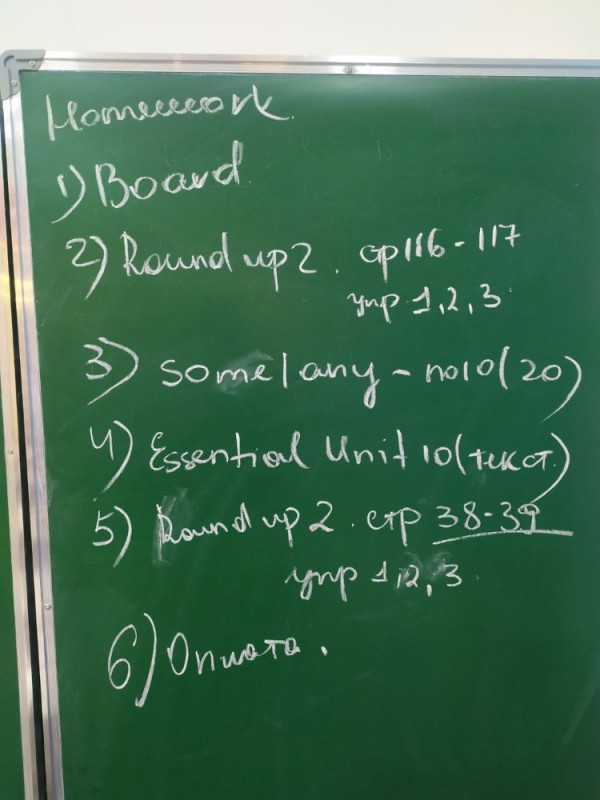 Homework.
1) Board
2) Round up 2. стр 116 - 117
упр 1, 2, 3.
3) some/any - по 10 (20)
4) Essential Unit 10 (текст)
5) Round up 2. стр 38-39
упр 1, 2, 3.
6) Оплата.